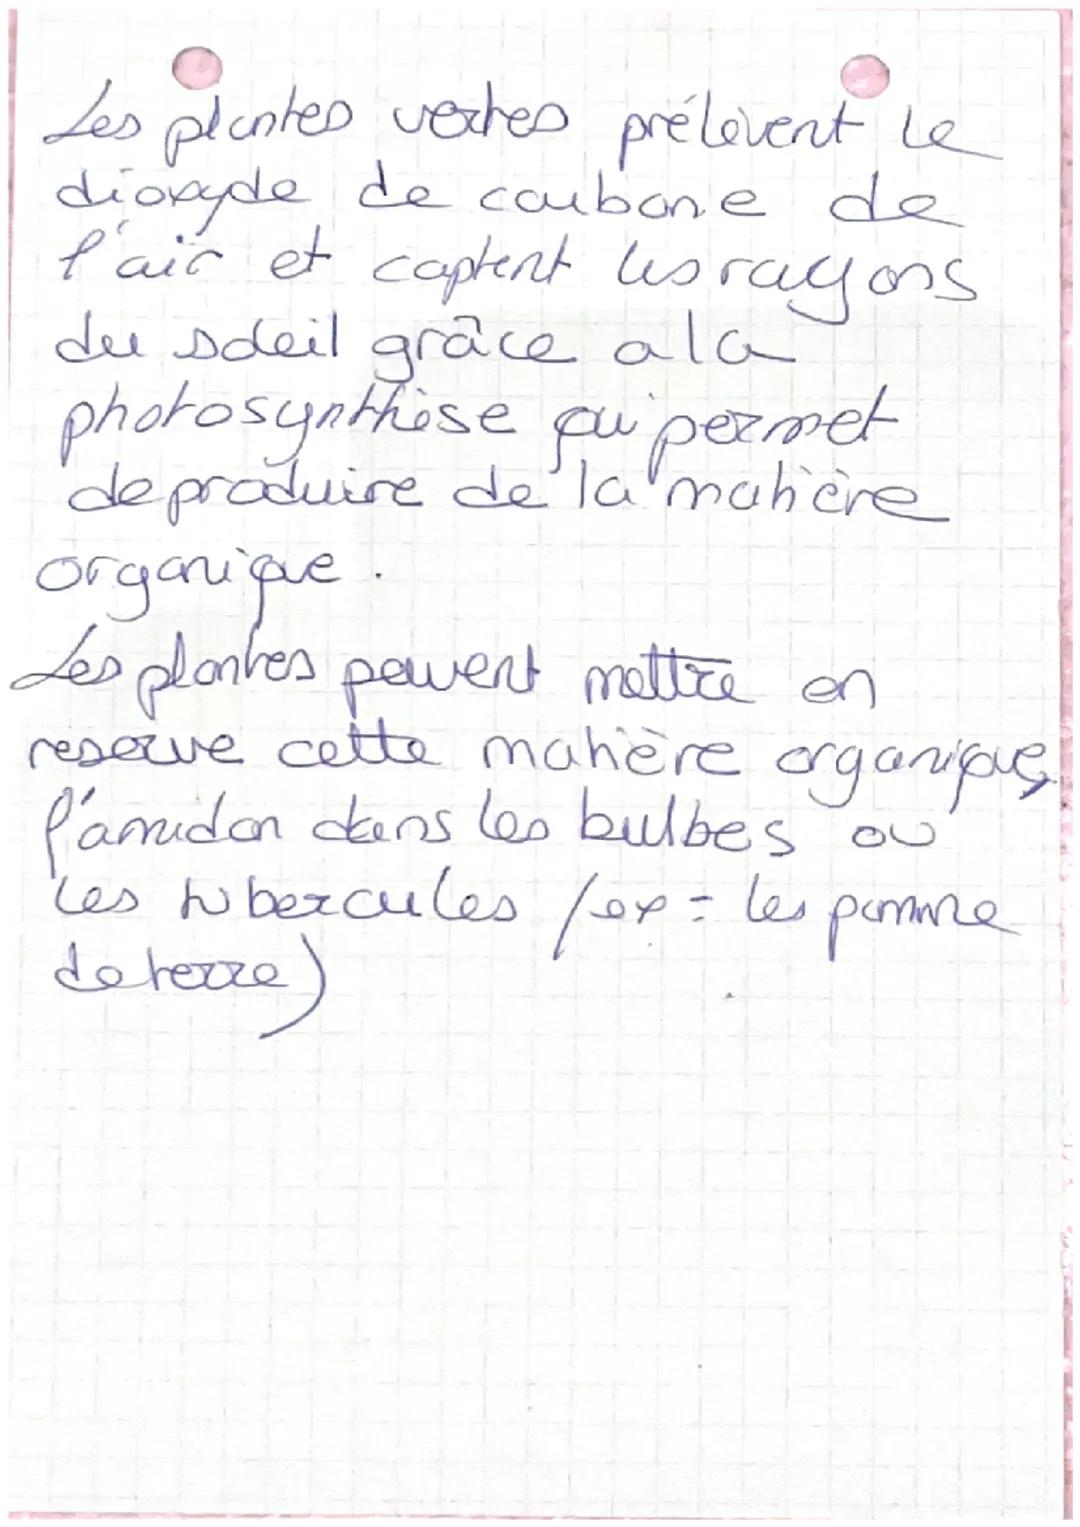 Les plantes vertes prélèvent le
dioxyde de carbone de
l'air et captent les rayons
du soleil grâce a la
photosynthèse qui permet
de produire de la matière
organique.
Les plantes peuvent mettre en
reserve cette matière organique,
l'amidon dans les bulbes ou
les tubercules (ex = les pomme
de terre)